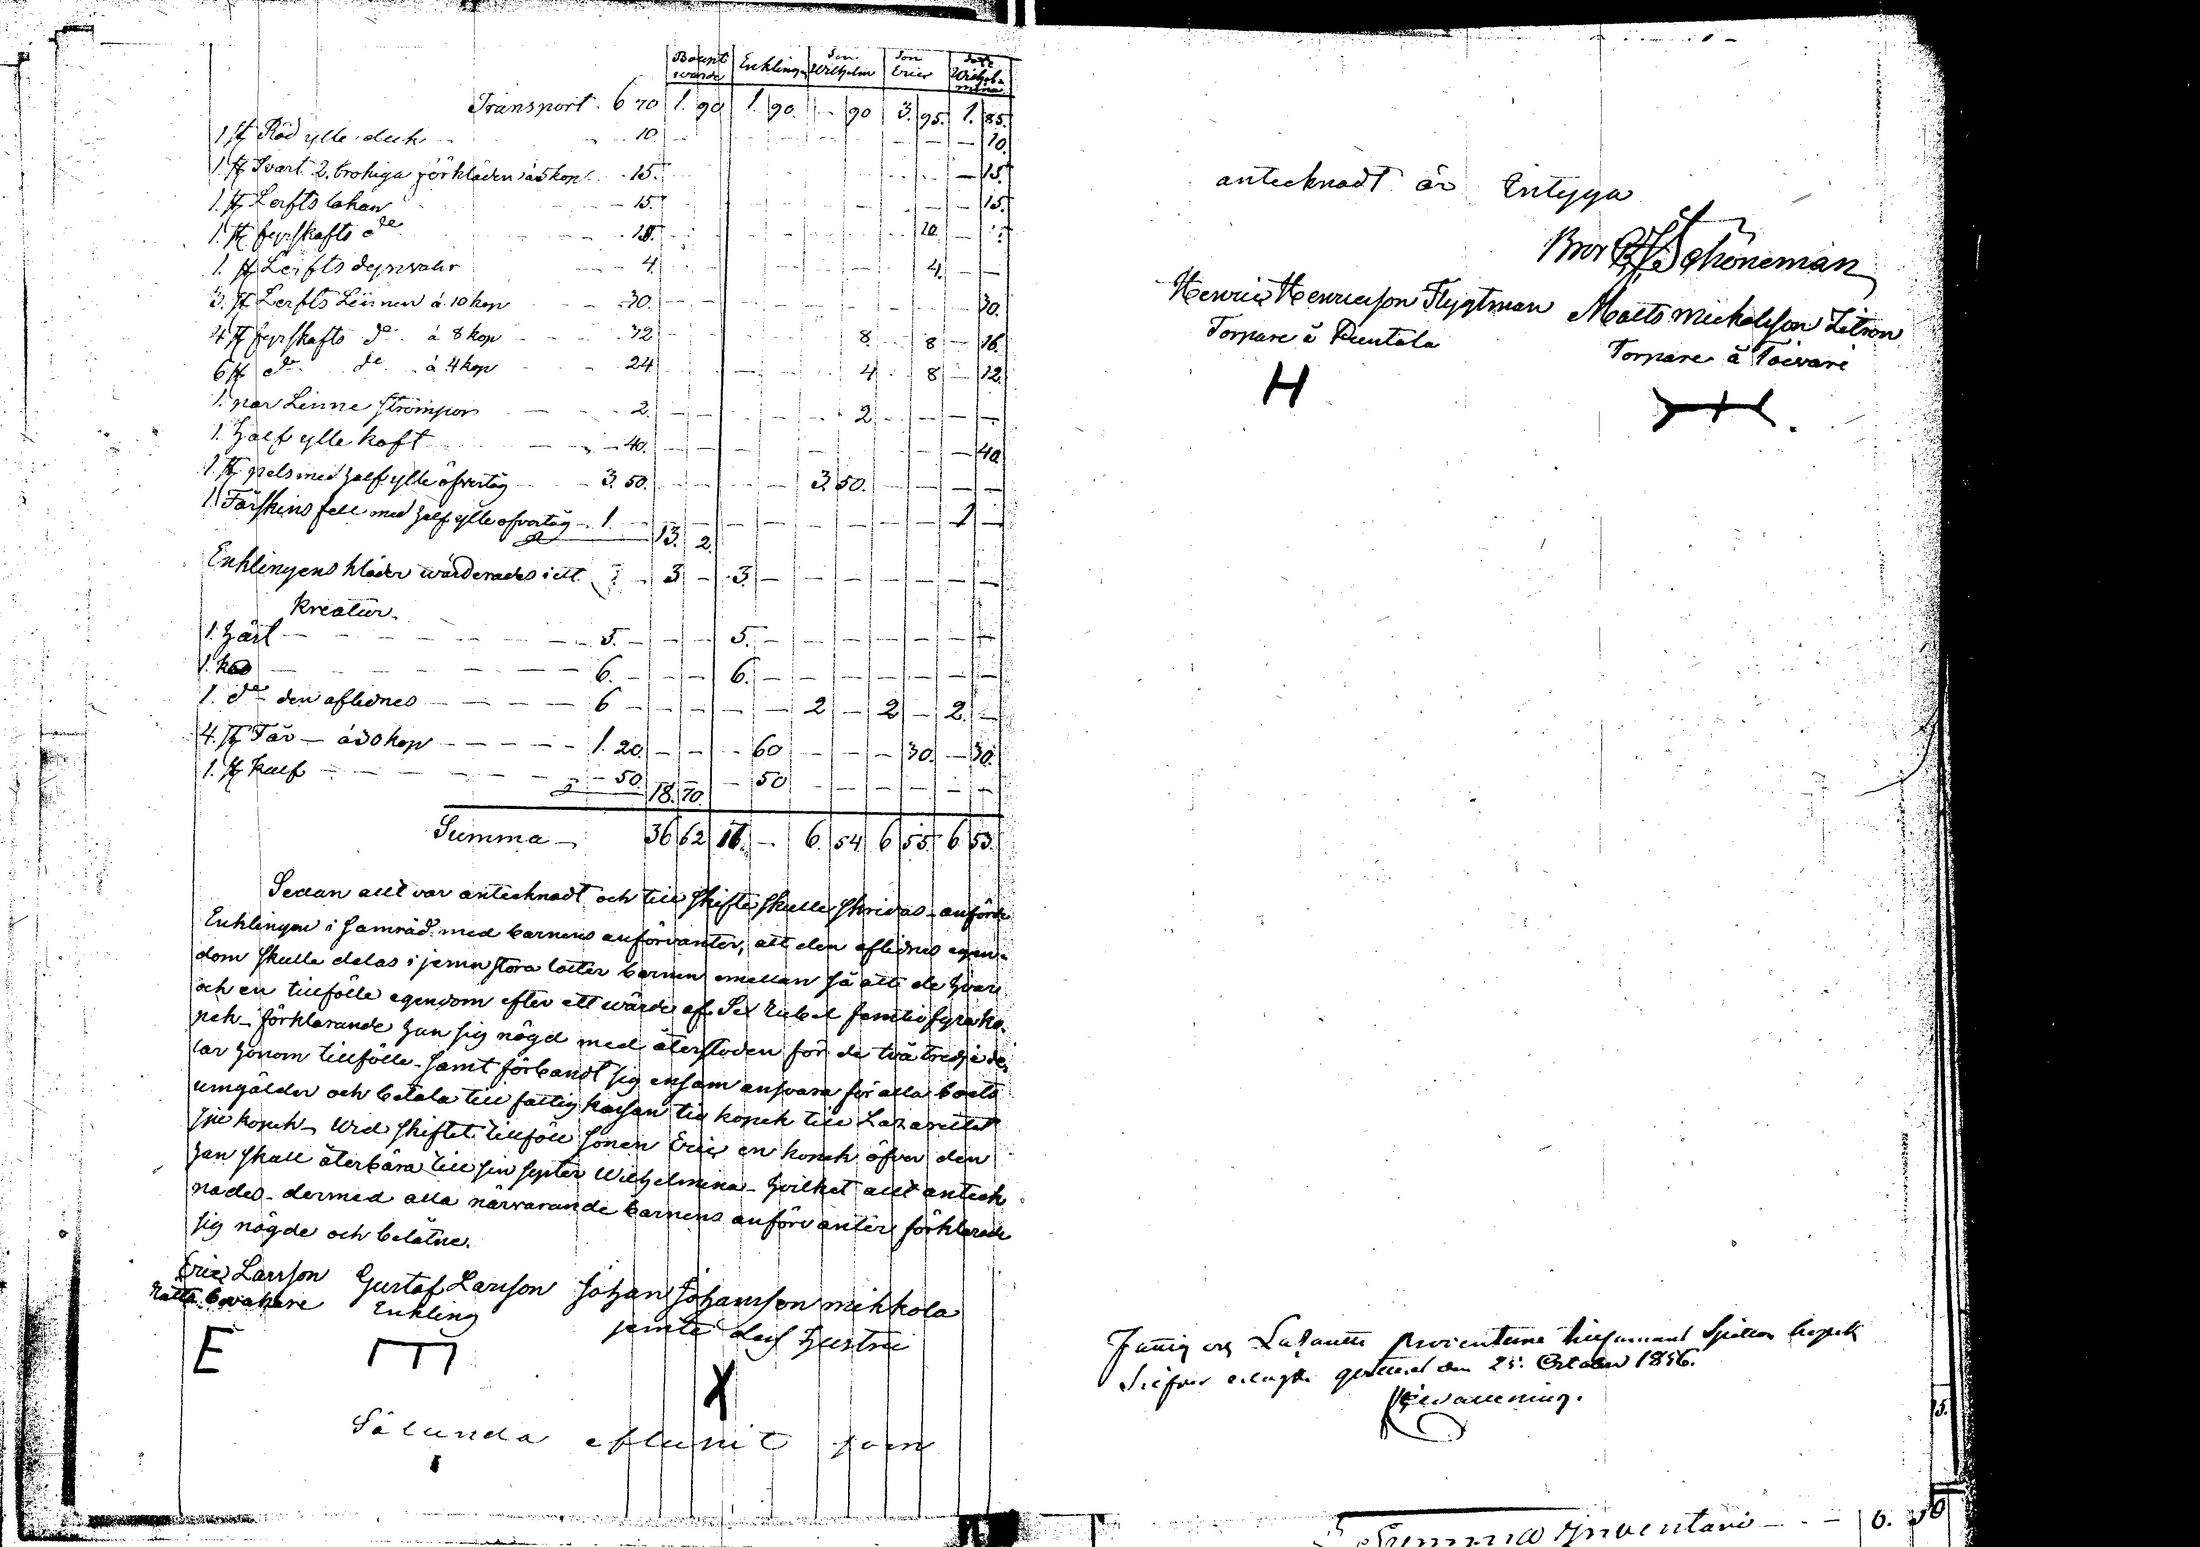 Enklingen Son Wilhelm Son Eric Wilhelmina
Transport 6 70 1. 90 1. 90. - 90 3. 95. 1. 85.
1 st Röd ylle duk 10. 10.
1 st Svart 2. brokiga förkläden à 5 kop 15. 15.
1. st Lerfts lakan 15. 15.
1. st fyrskafts do 20
1. st Lerfts 4. 4.
3. st Lerfts Linnen à 10 kop 30. 30.
4 st fyrskafts do à 8 kop 32 8 8 16.
6 st do do à 4 kop 24 4 8 12.
1. par Linne strumpor 2. 2
1. half ylle koft 40. 40
1 st pels med half ylle öfvertåg 3. 50. 3. 50.
1 Fårskins fell med half ylle öfvertåg 1. 1
13. 2.
Enklingens kläder wärderades i ett 3 3.
Kreatur.
1. 5. 5.
1. ko 6. 6.
1. do den aflidnes 6 2 2 2.
4. st Får à 30 kop 1. 20. 60 30. 30.
1. st kalf 50. 50
18. 70.
Summa 36 62 6. 54 6 55. 6 53.
Sedan allt var antecknadt och till skifte skulle skridas anförde
Enklingen i samråd med barnens anförvanter, att den aflidnes egen-
dom skulle delas i jemn stora lotter barnen emellan så att de hvar
och en tillfölle egendom efter ett wärde af Sex Rubel femtio fyra ko-
pek förklarande han sig nögd med återstoden för de två tredje de-
lar honom tillfölle samt förbandt sig ensam ansvara för alla boets
umgälder och betala till fattig kassan tio kopek till Lazarettet
sju kopek. Wid skiftet tillföll sonen Eric en kopek öfver den
han skall återbära till sin syster Wilhelmina hvilket allt anteck
nades dermed alla närvarande barnens anförvanter förklarade
sig nögde och belåtne.
Eric Larsson Gustaf Larsson Johan Johansson Mikkola
Rätta bevakare Enkling jemte dess hustru
E X
Sålunda aflupit som
antecknadt är Intyga
Bror Schöneman
Henric Henricsson Flygtman Matts Mickelsson
Torpare å Puntala Torpare å Toivari
H
Lazaretts tillsammans kopek
den 25. October 1856.
Summa Inventari 6.